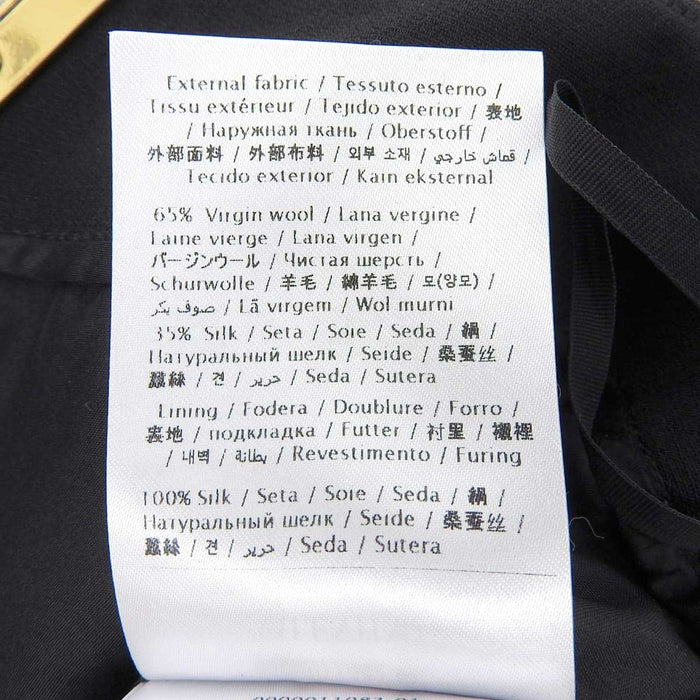 External fabric / Tessuto esterno /
Tissu extérieur / Tejido exterior / 表地
/ Наружная ткань / Oberstoff /
外部面料 / 外部布料 / 외부 소재 / قماش خارجي /
Tecido exterior / Kain eksternal
65% Virgin wool / Lana vergine /
Laine vierge / Lana virgen /
バージンウール / Чистая шерсть /
Schurwolle / 羊毛 / 綿羊毛 / 모(양모) /
صوف بكر / Lã virgem / Wol murni
35% Silk / Seta / Soie / Seda / 絹 /
Натуральный шелк / Seide / 桑蚕丝 /
蠶絲 / 견 / حرير / Seda / Sutera
Lining / Fodera / Doublure / Forro /
裏地 / подкладка / Futter / 衬里 / 襯裡
/ 내벽 / بطانة / Revestimento / Furing
100% Silk / Seta / Soie / Seda / 絹 /
Натуральный шелк / Seide / 桑蚕丝 /
蠶絲 / 견 / حرير / Seda / Sutera